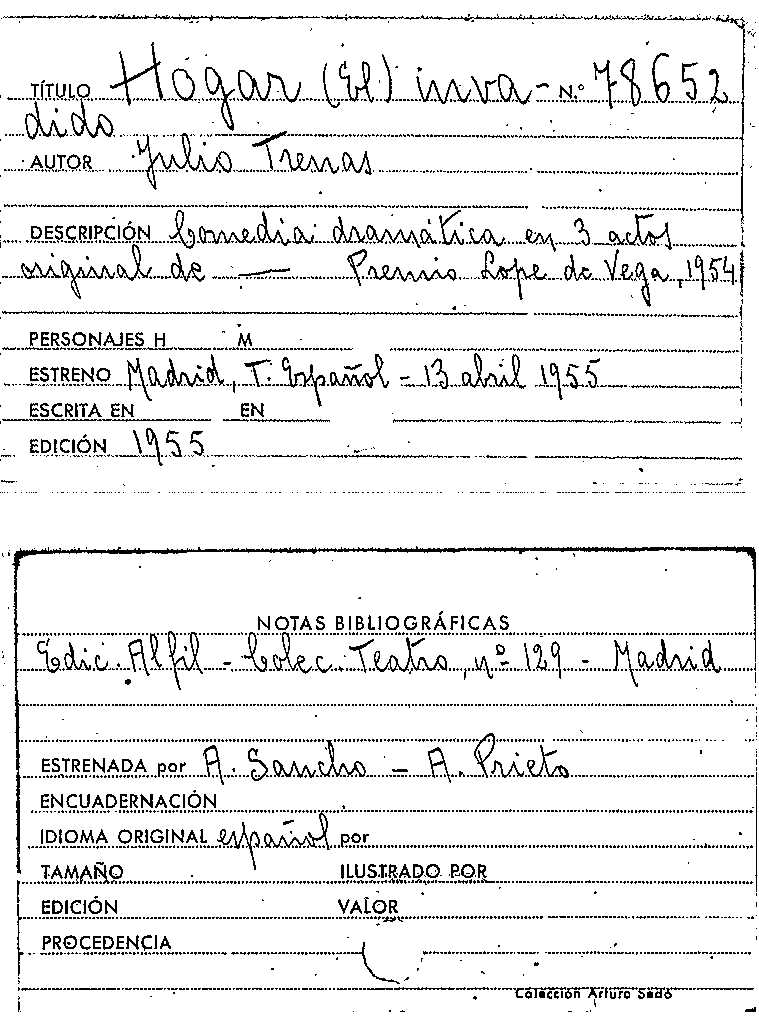 TÍTULO Hogar (El) inva- N.º 78652
dido
AUTOR Julio Trenas
DESCRIPCIÓN Comedia dramática en 3 actos
original de — Premio Lope de Vega, 1954
PERSONAJES H M
ESTRENO Madrid, T. Español - 13 abril 1955
ESCRITA EN EN
EDICIÓN 1955
NOTAS BIBLIOGRÁFICAS
Edic. Alfil - Colec. Teatro, nº 129 - Madrid
ESTRENADA por A. Sancho - A. Prieto
ENCUADERNACIÓN
IDIOMA ORIGINAL español por
TAMAÑO ILUSTRADO POR
EDICIÓN VALOR
PROCEDENCIA
Colección Arturo Sedó